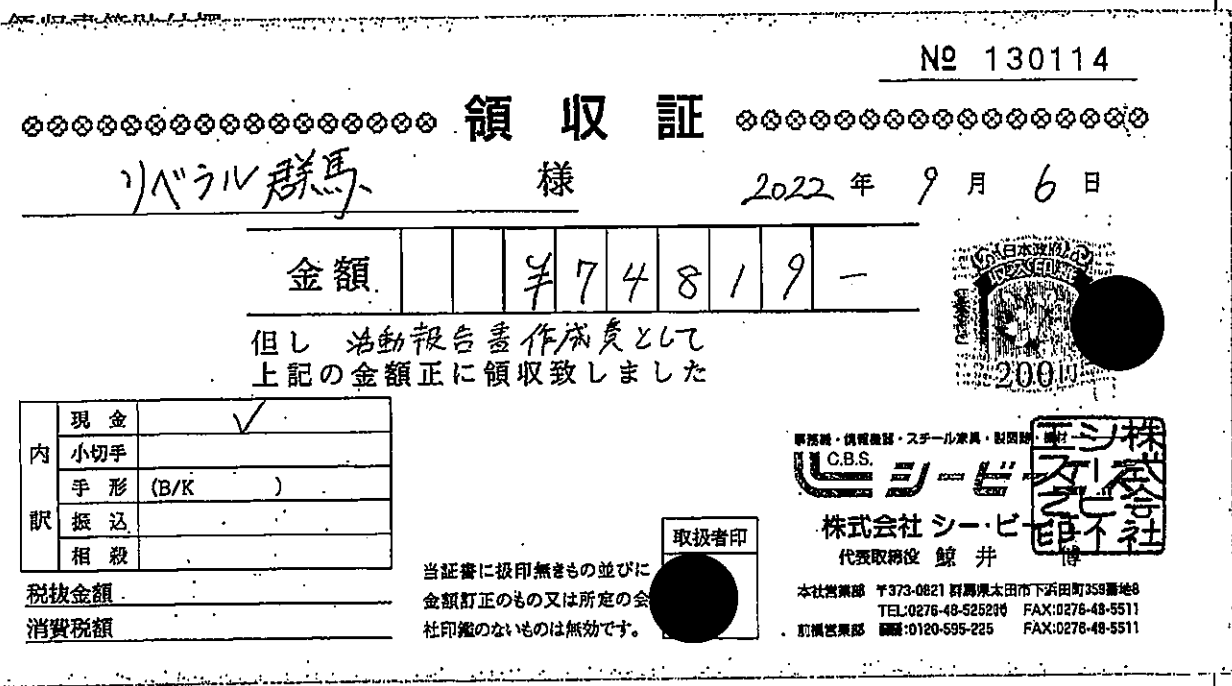 № 130114
領 収 証
リベラル群馬 様 2022 年 9 月 6 日
金額 ¥74819-
但し 活動報告書作成費として
上記の金額正に領収致しました
日本政府
収入印紙
200円
内訳
現 金 ✓
小切手
手 形 (B/K )
振 込
相 殺
税抜金額
消費税額
取扱者印
当証書に扱印無きもの並びに
金額訂正のもの又は所定の会
社印鑑のないものは無効です。
事務機・情報機器・スチール家具・製図
C.B.S.
シービー
株式会社 シー・ビー
代表取締役 鯨 井 博
本社営業部 〒373-0821 群馬県太田市下浜田町359番地8
TEL:0276-48-5252 FAX:0276-48-5511
前橋営業部 :0120-595-225 FAX:0276-48-5511